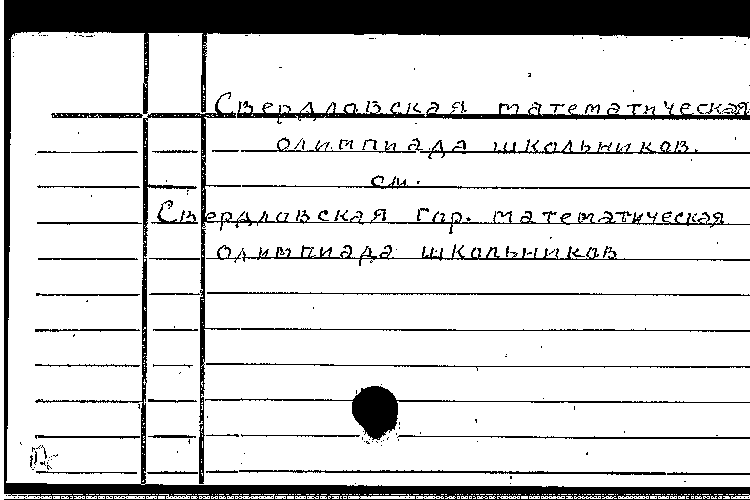 Свердловская математическая
олимпиада школьников.
см.
Свердловская гор. математическая
олимпиада школьников